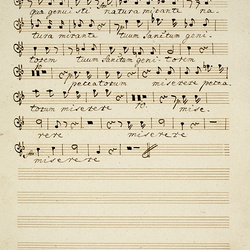 qua genuisti natura mirante na.
tura mirante tuum sanctum geni.
torem tuum sanctum genitorem
peccatorum miserere pecca.
torum miserere mise.
rere miserere
miserere